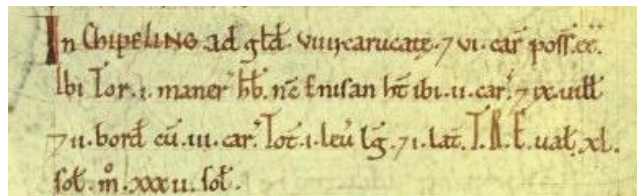 In Chipeling ad gld̃. viiij carucatę. ⁊ vi. car̃ poss̃. ẽẽ.
Ibi Tor. i. maner̃ hb̃. nc̃ Ernisan ht̃ ibi. ii. car̃. ⁊ ix. uill̃
⁊ ii. bord̃ cũ. iii. car̃. Tot̃. i. leũ lg̃. ⁊ i. lat̃. T. R. E. ual̃. xl.
sol̃. m̊. xxxii. sol̃.